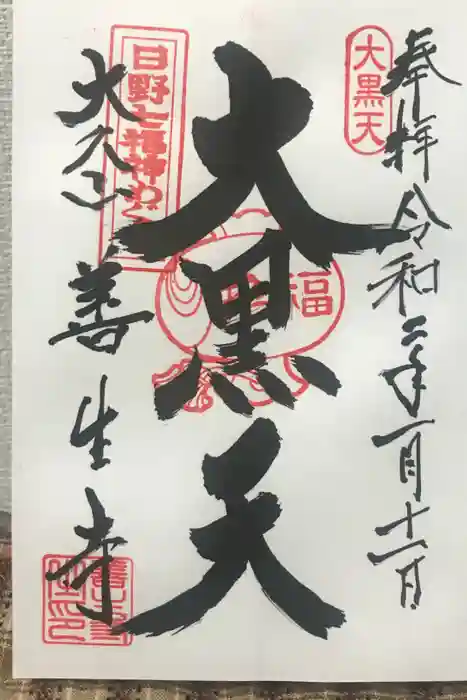 奉拝 令和二年一月十一日
大黒天
大黒天
福
日野七福神めぐり
大久山 善生寺